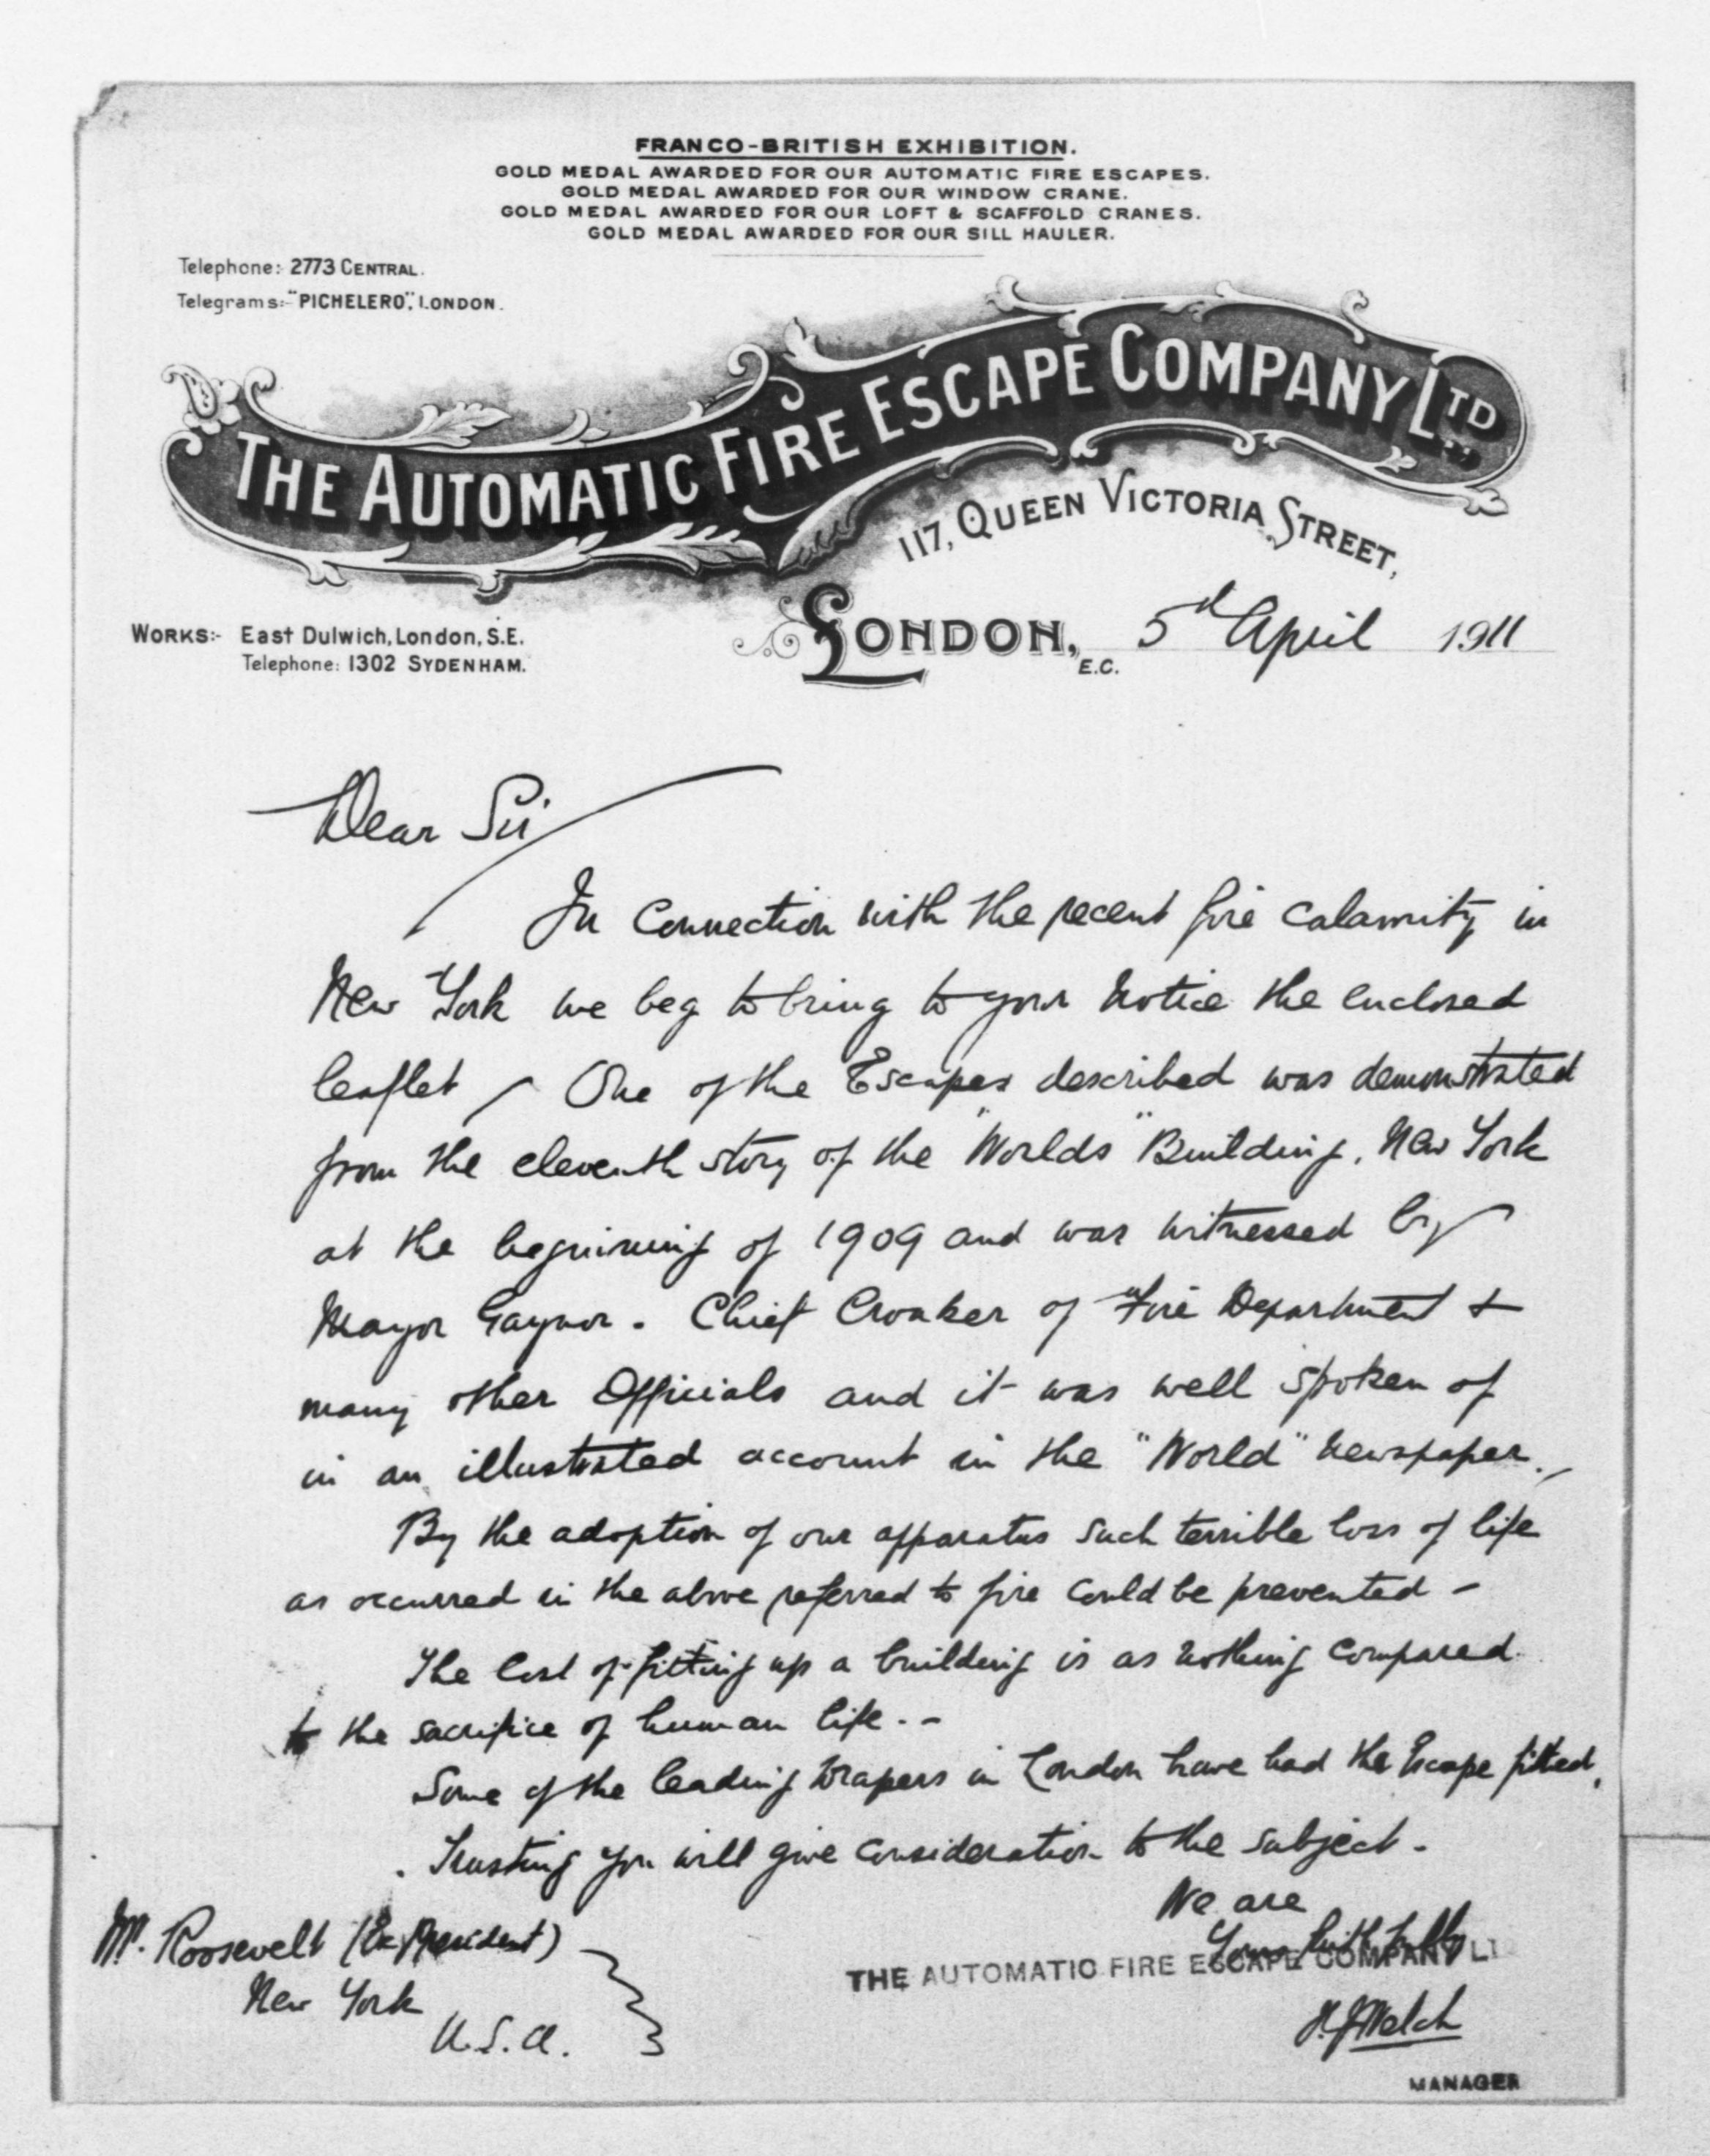 FRANCO-BRITISH EXHIBITION.
GOLD MEDAL AWARDED FOR OUR AUTOMATIC FIRE ESCAPES.
GOLD MEDAL AWARDED FOR OUR WINDOW CRANE.
GOLD MEDAL AWARDED FOR OUR LOFT & SCAFFOLD CRANES.
GOLD MEDAL AWARDED FOR OUR SILL HAULER.
Telephone:- 2773 CENTRAL.
Telegrams:-"PICHELERO", LONDON.
THE AUTOMATIC FIRE ESCAPE COMPANY LTD
117, QUEEN VICTORIA STREET,
LONDON, E.C. 5d April 1911
WORKS:- East Dulwich, London, S.E.
Telephone: 1302 SYDENHAM.
Dear Sir
In Connection with the recent fire Calamity in
New York we beg to bring to your Notice the enclosed
leaflet / One of the Escapes described was demonstrated
from the eleventh story of the "Worlds" Building, New York
at the beginning of 1909 and was witnessed by
Mayor Gaynor. Chief Croaker of Fire Department +
many other Officials and it was well spoken of
in an illustrated account in the "World" Newspaper.
By the adoption of our apparatus such terrible loss of life
as occurred in the above referred to fire could be prevented -
The Cost of fitting up a building is as nothing compared
to the sacrifice of human life. -
Some of the leading Drapers in London have had the Escape fitted.
Trusting you will give consideration to the subject -
We are
Yours faithfully
THE AUTOMATIC FIRE ESCAPE COMPANY LTD
H.J. Welch
MANAGER
Mr. Roosevelt (Ex President)
New York
U.S.A.